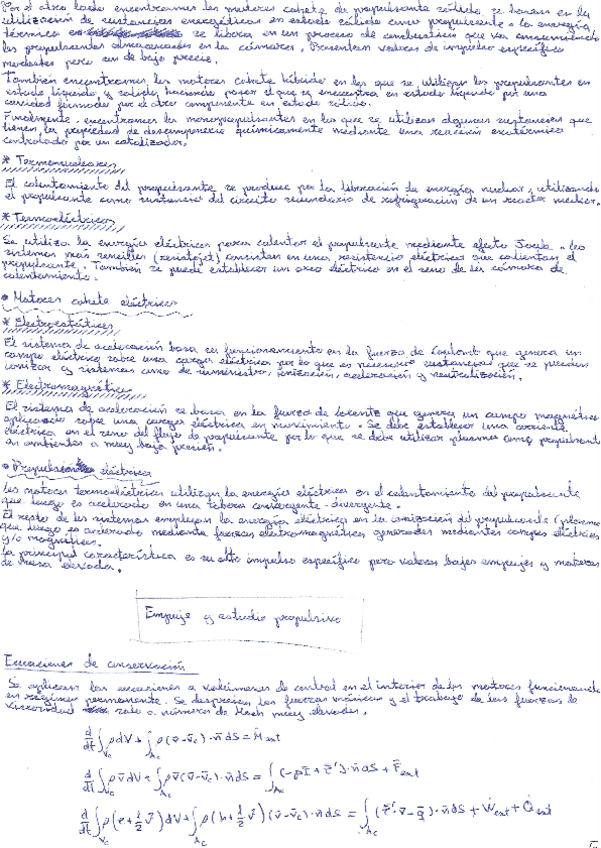 Por el otro lado encontramos los motores cohete de propulsante sólido se basan en la
utilización de sustancias energéticas en estado sólido como propulsante. La energía
térmica se libera en un proceso de combustión que va consumiendo
los propulsantes almacenados en la cámara. Presentan valores de impulso específico
modestos pero son de bajo precio.
También encontramos los motores cohete híbrido en los que se utilizan los propulsantes en
estado líquido y sólido, haciendo pasar el que se encuentra en estado líquido por una
cavidad formada por el otro componente en estado sólido.
Finalmente, encontramos los monopropulsantes en los que se utilizan algunas sustancias que
tienen la propiedad de descomponerse químicamente mediante una reacción exotérmica
controlada por un catalizador.
* Termonucleares
El calentamiento del propulsante se produce por la liberación de energía nuclear, utilizando
el propulsante como sustancia del circuito secundario de refrigeración de un reactor nuclear.
* Termoeléctricos
Se utiliza la energía eléctrica para calentar el propulsante mediante efecto Joule. Los
sistemas más sencillos (resistojet) consisten en una resistencia eléctrica que calientan el
propulsante. También se puede establecer un arco eléctrico en el seno de la cámara de
calentamiento.
• Motores cohete eléctricos
* Electroestáticos
El sistema de aceleración basa su funcionamiento en la fuerza de Coulomb que genera un
campo eléctrico sobre una carga eléctrica por lo que es necesario sustancias que se puedan
ionizar y sistemas como de suministro, ionización, aceleración y neutralización.
* Electromagnéticos
El sistema de aceleración se basa en la fuerza de Lorentz que genera un campo magnético
aplicado sobre una carga eléctrica en movimiento. Se debe establecer una corriente
eléctrica en el seno del flujo de propulsante por lo que se debe utilizar plasmas como propulsante
en ambientes a muy baja presión.
• Propulsión eléctrica
Los motores termoeléctricos utilizan la energía eléctrica en el calentamiento del propulsante
que luego es acelerado en una tobera convergente-divergente.
El resto de los sistemas emplean la energía eléctrica en la ionización del propulsante (plasma)
que luego es acelerado mediante fuerzas electromagnéticas generadas mediantes campos eléctricos
y/o magnéticos.
La principal característica es su alto impulso específico pero valores bajos empujes y motores
de masa elevada.
Empuje y estudio propulsivo
Ecuaciones de conservación
Se aplican las ecuaciones a volúmenes de control en el interior de los motores funcionando
en régimen permanente. Se desprecian las fuerzas másicas y el trabajo de las fuerzas de
viscosidad solo a números de Mach muy elevados.
d/dt ∫_Vc ρ dV + ∫_Ac ρ(v̄ - v̄c)·n̄ dS = Ṁext
d/dt ∫_Vc ρ v̄ dV + ∫_Ac ρ v̄(v̄ - v̄c)·n̄ dS = ∫_Ac (-pĪ + τ̄')·n̄ dS + F̄ext
d/dt ∫_Vc ρ(e + ½ v̄²) dV + ∫_Ac ρ(h + ½ v̄²)(v̄ - v̄c)·n̄ dS = ∫_Ac (τ̄'·v̄ - q̄)·n̄ dS + Ẇext + Q̇ext